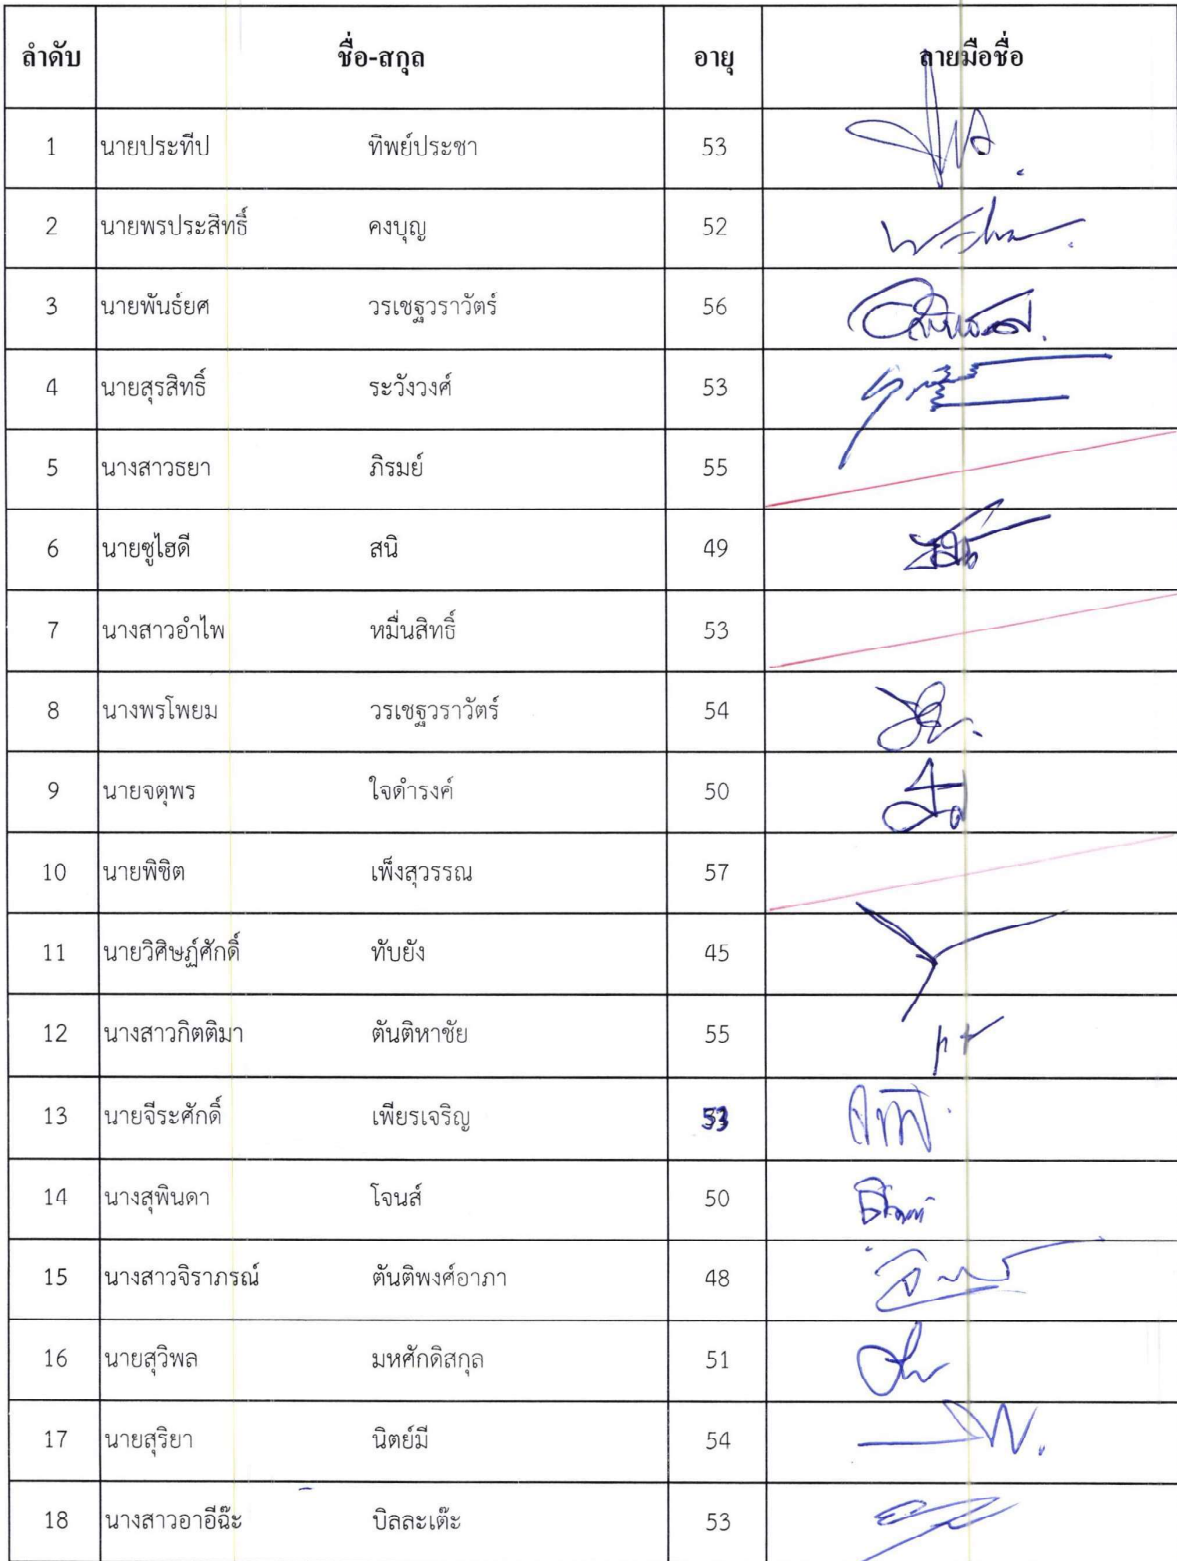 ลำดับ ชื่อ-สกุล อายุ ลายมือชื่อ
1 นายประทีป ทิพย์ประชา 53
2 นายพรประสิทธิ์ คงบุญ 52
3 นายพันธ์ยศ วรเชฐวราวัตร์ 56
4 นายสุรสิทธิ์ ระวังวงศ์ 53
5 นางสาวธยา ภิรมย์ 55
6 นายซูไฮดี สนิ 49
7 นางสาวอำไพ หมื่นสิทธิ์ 53
8 นางพรโพยม วรเชฐวราวัตร์ 54
9 นายจตุพร ใจดำรงค์ 50
10 นายพิชิต เพ็งสุวรรณ 57
11 นายวิศิษฏ์ศักดิ์ ทับยัง 45
12 นางสาวกิตติมา ตันติหาชัย 55
13 นายจีระศักดิ์ เพียรเจริญ 53
14 นางสุพินดา โจนส์ 50
15 นางสาวจิราภรณ์ ตันติพงศ์อาภา 48
16 นายสุวิพล มหศักดิสกุล 51
17 นายสุริยา นิตย์มี 54
18 นางสาวอาอีฉ๊ะ บิลละเต๊ะ 53